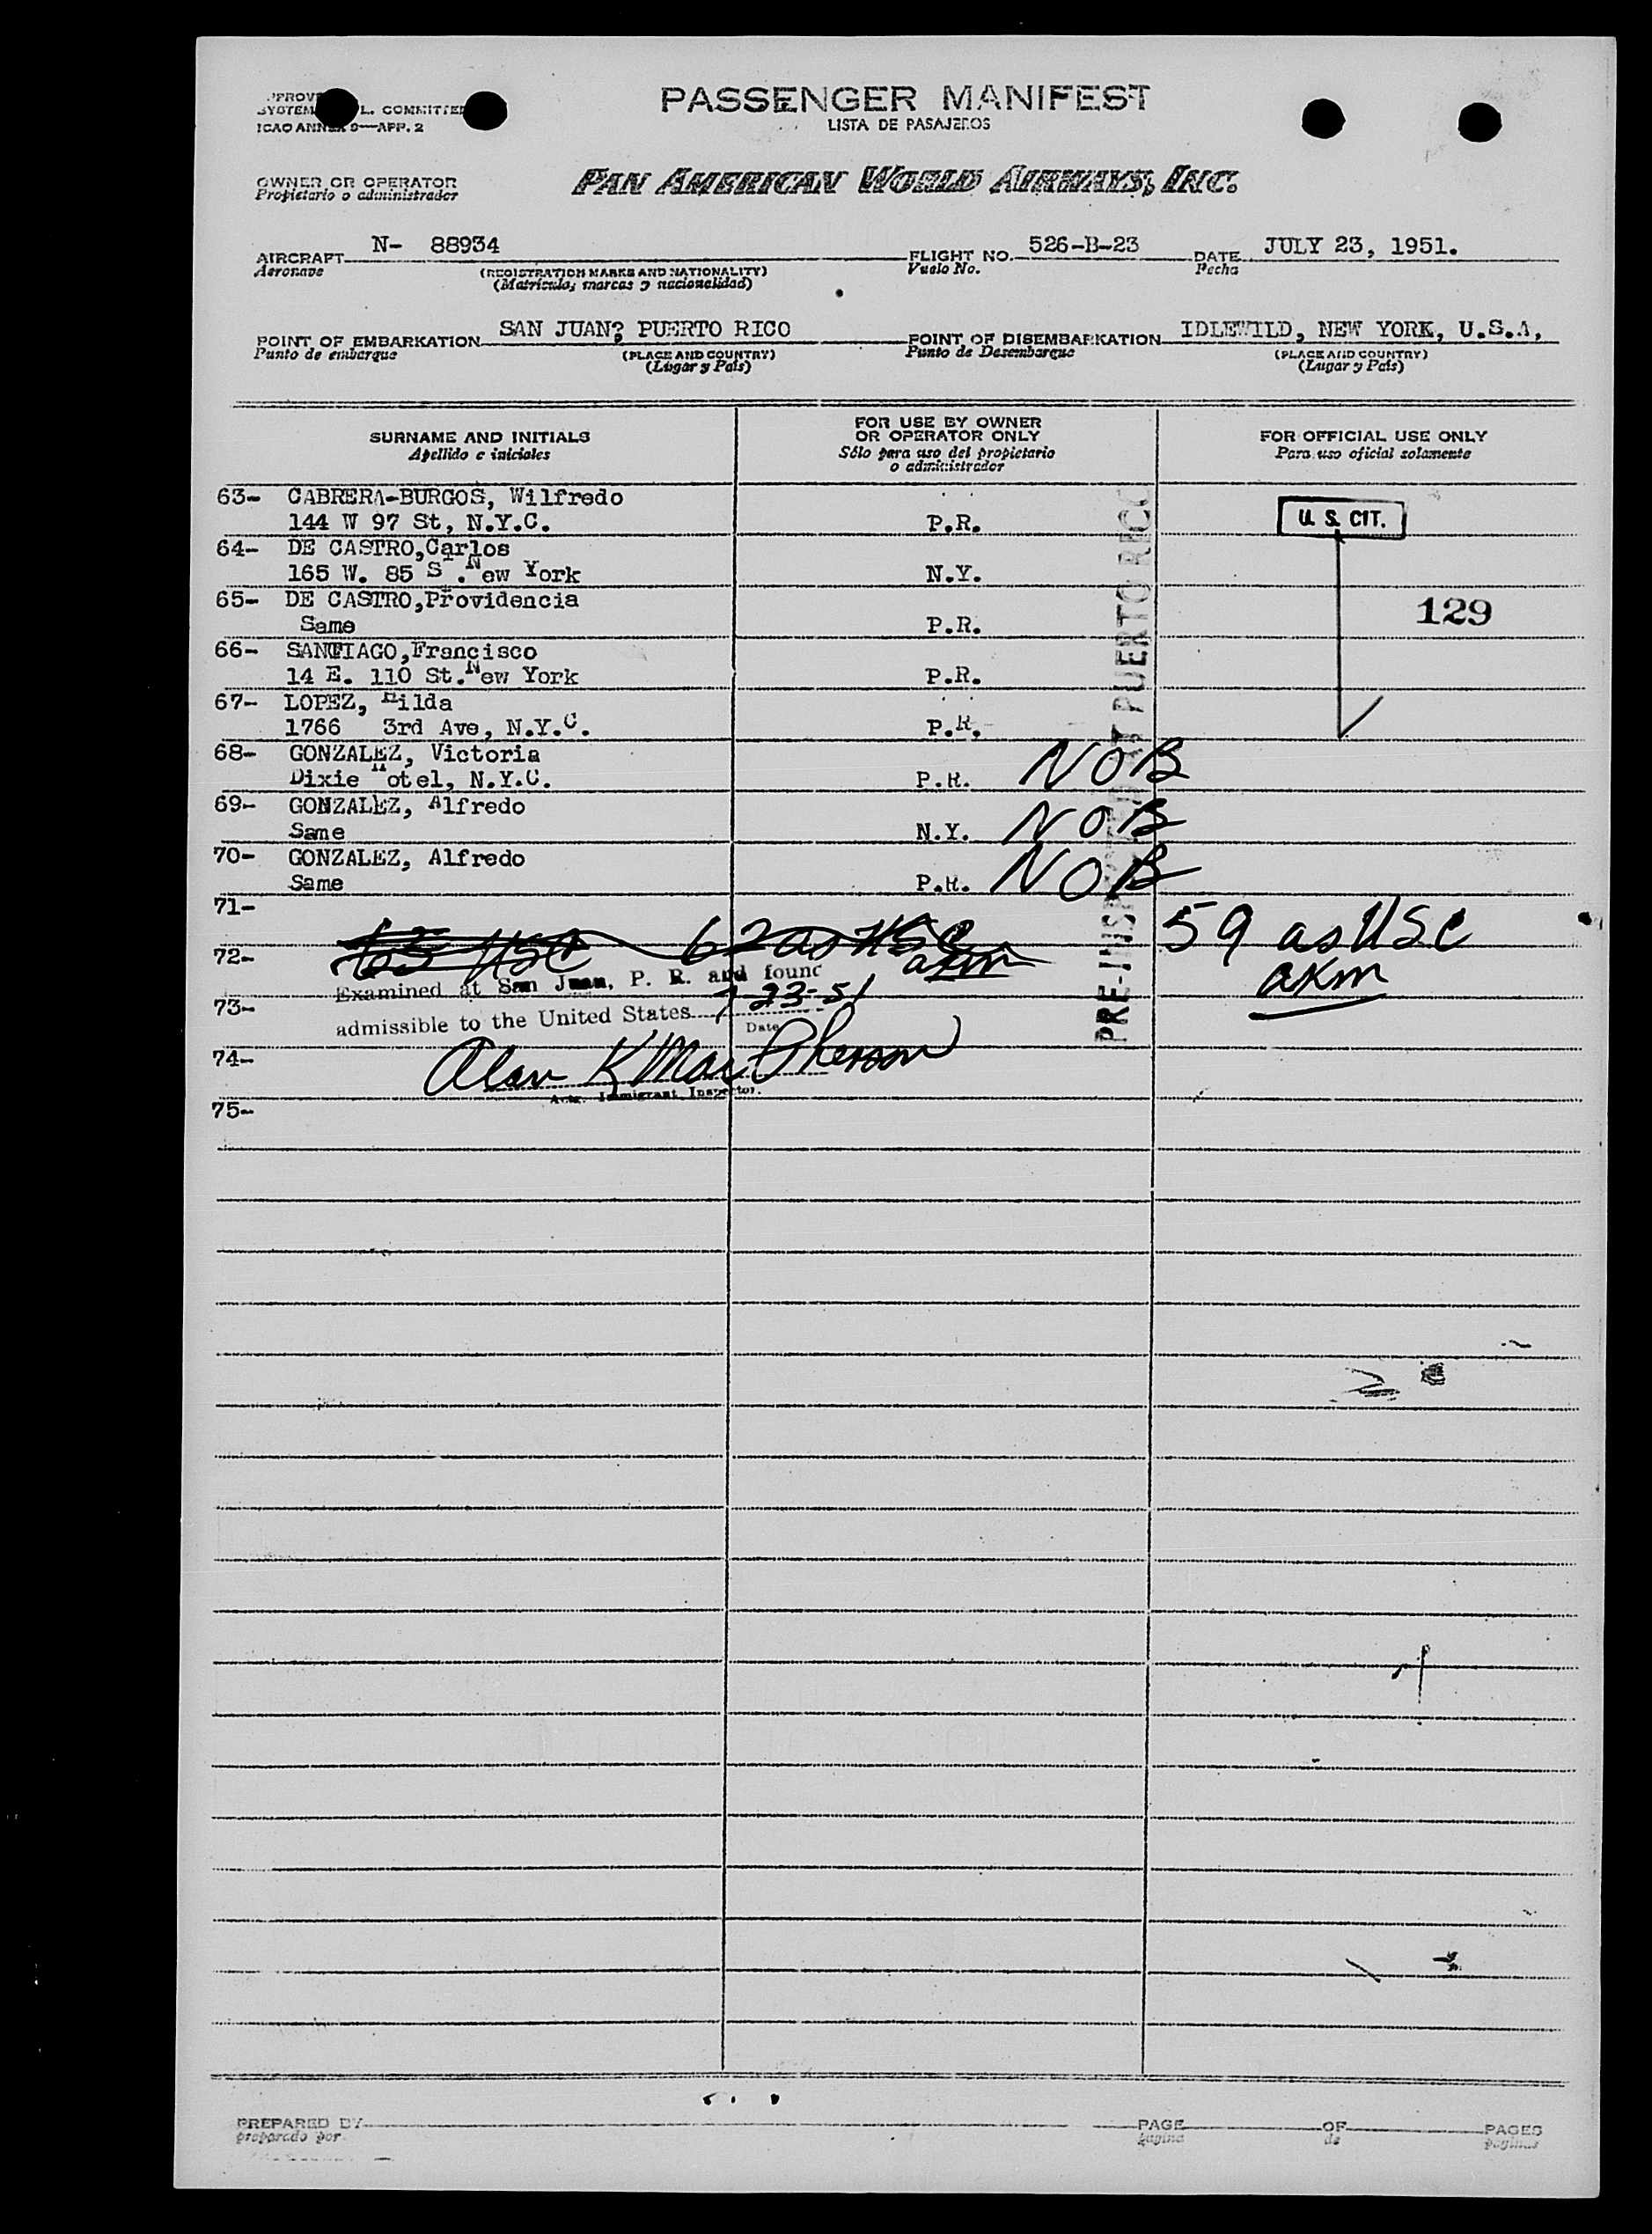 PASSENGER MANIFEST
LISTA DE PASAJEROS
L. COMMITTEE
ICAO ANNEX 9—APP. 2
OWNER OR OPERATOR
Propietario o administrador
PAN AMERICAN WORLD AIRWAYS, INC.
AIRCRAFT N- 88934 FLIGHT NO. 526-B-23 DATE JULY 23, 1951.
Aeronave (REGISTRATION MARKS AND NATIONALITY) Vuelo No. Fecha
(Matrícula, marcas y nacionalidad)
POINT OF EMBARKATION SAN JUAN? PUERTO RICO POINT OF DISEMBARKATION IDLEWILD, NEW YORK, U.S.A,
Punto de embarque (PLACE AND COUNTRY) Punto de Desembarque (PLACE AND COUNTRY)
(Lugar y País) (Lugar y País)
SURNAME AND INITIALS
Apellido e iniciales
FOR USE BY OWNER
OR OPERATOR ONLY
Sólo para uso del propietario
o administrador
FOR OFFICIAL USE ONLY
Para uso oficial solamente
63- CABRERA-BURGOS, Wilfredo
144 W 97 St, N.Y.C. P.R. U. S. CIT.
64- DE CASTRO,Carlos
165 W. 85 S . New York N.Y.
65- DE CASTRO,Providencia 129
Same P.R.
66- SANTIAGO,Francisco
14 E. 110 St. New York P.R.
67- LOPEZ, Hilda
1766 3rd Ave, N.Y.C. P.R.
68- GONZALEZ, Victoria NOB
Dixie Hotel, N.Y.C. P.R.
69- GONZALEZ, Alfredo NOB
Same N.Y.
70- GONZALEZ, Alfredo NOB
Same P.R.
PRE-INSPECTED AT PUERTO RICO
71-
63 USC 62 as USC 59 as USC
72- akm akm
Examined at San Juan, P. R. and found
73- 7 23-51
admissible to the United States
Date
74- Alan K MacPherson
Actg. Immigrant Inspector.
75-
PREPARED BY PAGE OF PAGES
preparado por página de páginas